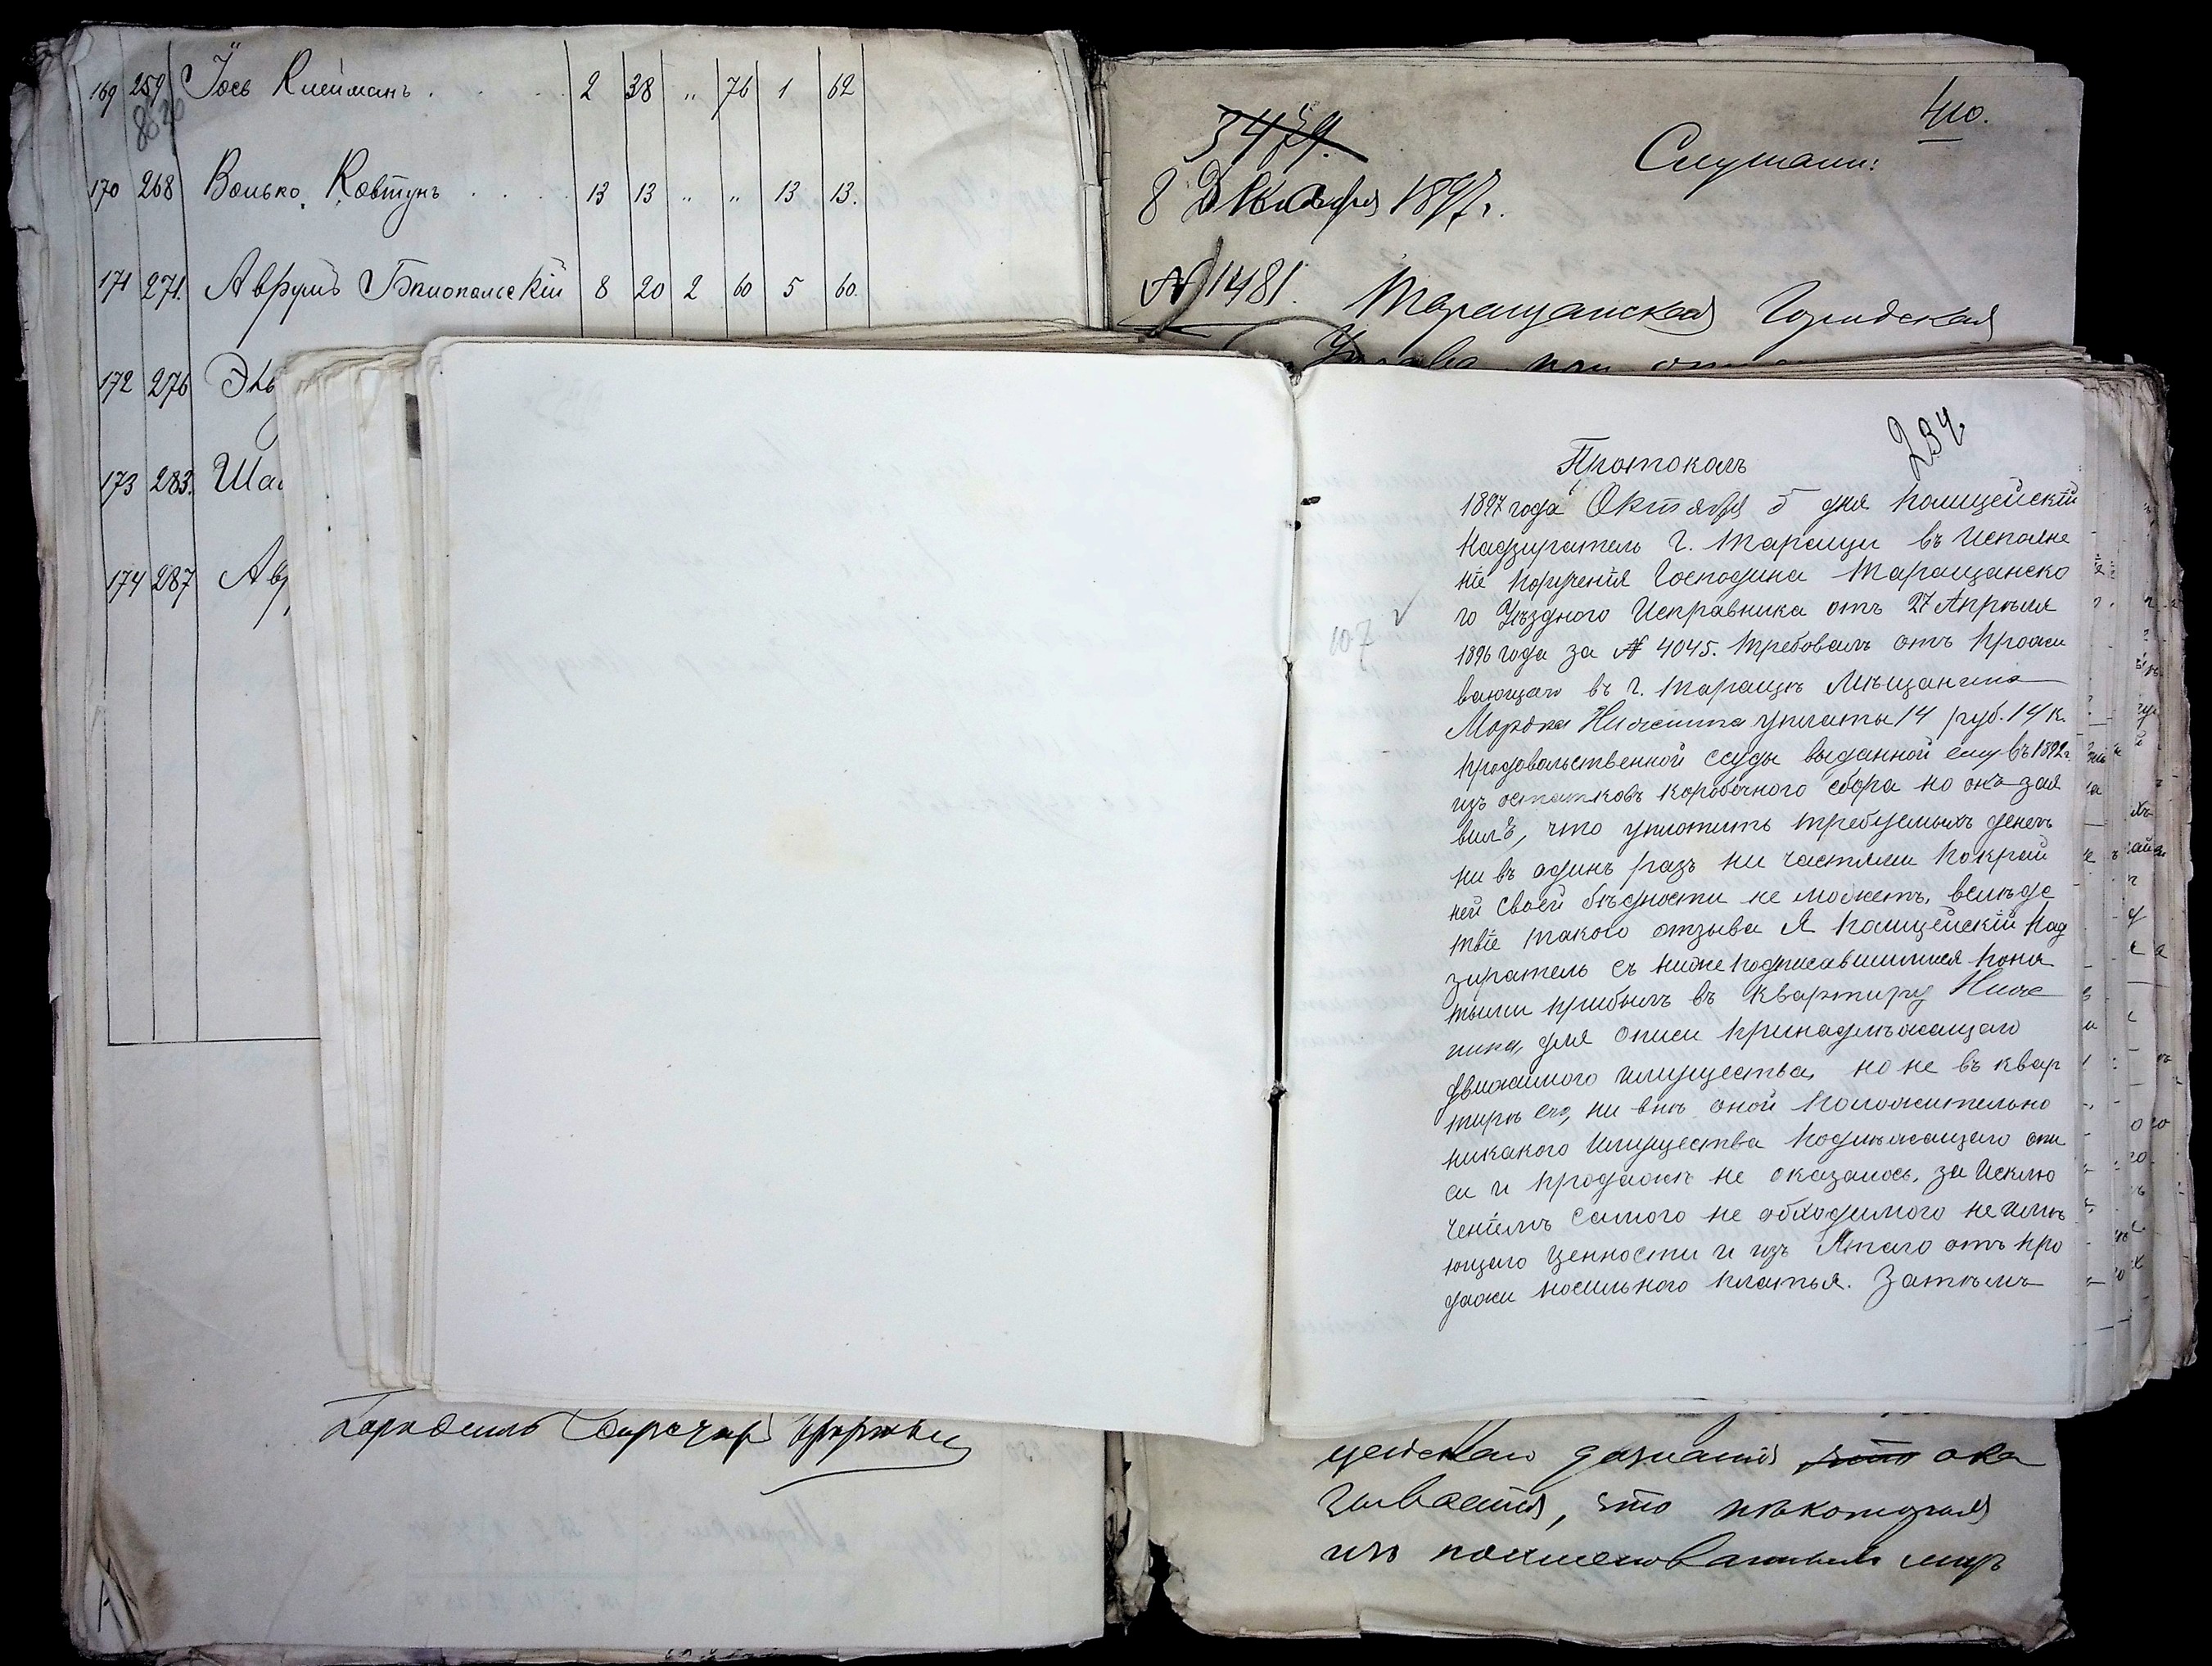 169 259 Іось Клейманъ . . . 2 38 „ 76 1 62
80
170 268 Волько Ковтунъ . . . 13 13 „ „ 13 13.
171 271. Аврумъ Бѣлопольскій 8 20 2 60 5 60.
172 276 Эль
173 283. Ша
174 287 Ав
410.
3479.
Слушали:
8 Декабря 1897 г.
№ 1481.
Таращанская Городская
Управа при
234
Протоколъ
1897 года Октября 5 дня Полицейскій
Надзиратель г. Таращи въ исполне
ніе порученія Господина Таращанско
го Уѣзднаго Исправника отъ 27 Апрѣля
1896 года за № 4045. требовалъ отъ прожи
вающаго въ г. Таращѣ Мѣщанина
уплаты 14 руб. 14 к.
продовольственной ссуды выданной ему въ 1892 г.
изъ остатковъ коробочного сбора но онъ зая
вилъ, что уплотить требуемыхъ денегъ
ни въ одинъ разъ ни частями по край
ней своей бѣдности не можетъ, вслѣдс
твіе такого отзыва Я Полицейскій Над
зиратель съ нижеподписавшимися поня
тыми прибылъ въ квартиру
для описи принадлѣжащаго
движимого имущества, но не въ квар
тирѣ его, ни внѣ оной положительно
никакого имущества подлѣжащего опи
си и продажѣ не оказалось, за исклю
ченіемъ самого не обходимого не имѣ
ющего ценности и изъ ятаго отъ про
дажи носильного платья. Затѣмъ
107
цейскаго дознанія что ока
зывается, что нѣкоторыя
изъ поименованныхъ лицъ